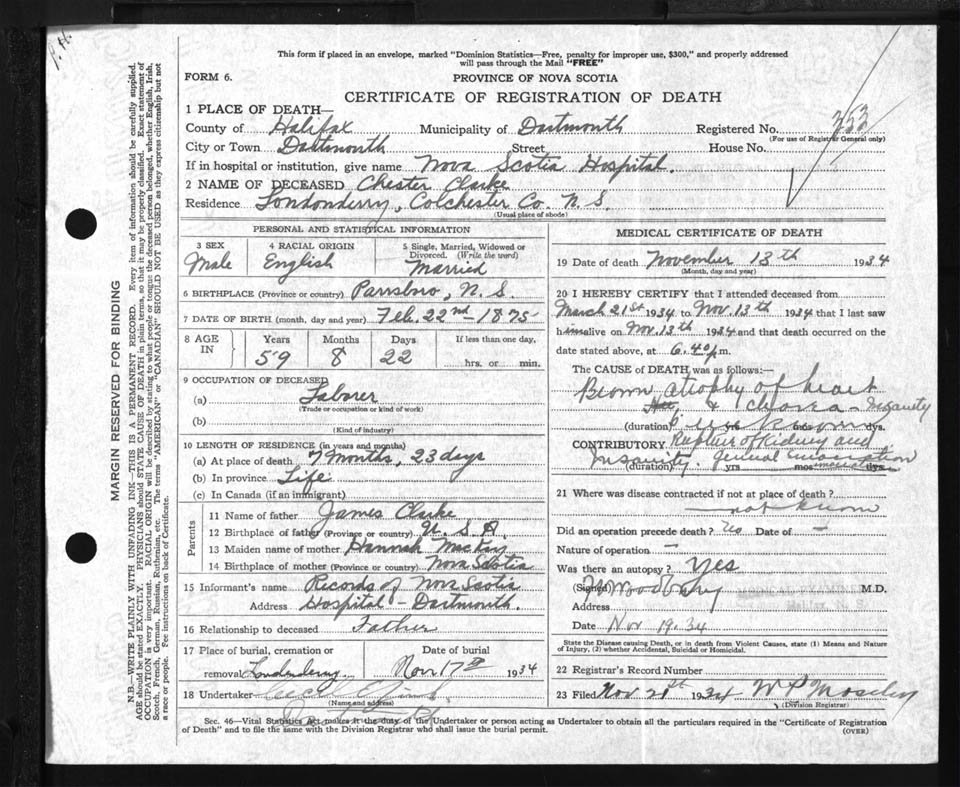 P. H.
This form if placed in an envelope, marked "Dominion Statistics—Free, penalty for improper use, $300," and properly addressed
will pass through the Mail "FREE"
FORM 6.
PROVINCE OF NOVA SCOTIA
CERTIFICATE OF REGISTRATION OF DEATH
1 PLACE OF DEATH—
County of Halifax Municipality of Dartmouth Registered No. 253
(For use of Registrar General only)
City or Town Dartmouth Street House No.
If in hospital or institution, give name Nova Scotia Hospital.
2 NAME OF DECEASED Chester Clarke
Residence Londonderry, Colchester Co. N. S.
(Usual place of abode)
PERSONAL AND STATISTICAL INFORMATION
3 SEX 4 RACIAL ORIGIN 5 Single, Married, Widowed or
Divorced. (Write the word)
Male English Married
6 BIRTHPLACE (Province or country) Parrsboro, N. S.
7 DATE OF BIRTH (month, day and year) Feb. 22nd - 1875
8 AGE IN Years Months Days If less than one day,
59 8 22 hrs. or min.
9 OCCUPATION OF DECEASED
(a) Laborer
(Trade or occupation or kind of work)
(b)
(Kind of industry)
10 LENGTH OF RESIDENCE (in years and months)
(a) At place of death 7 Months, 23 days
(b) In province Life
(c) In Canada (if an immigrant)
Parents
11 Name of father James Clarke
12 Birthplace of father (Province or country) U. S. A.
13 Maiden name of mother Hannah
14 Birthplace of mother (Province or country) Nova Scotia
15 Informant's name Records of Nova Scotia
Address Hospital - Dartmouth.
16 Relationship to deceased Father
17 Place of burial, cremation or Date of burial
removal Londonderry Nov. 17th 1934
18 Undertaker
(Name and address)
MEDICAL CERTIFICATE OF DEATH
19 Date of death November 13th 1934
(Month, day and year)
20 I HEREBY CERTIFY that I attended deceased from
March 21st 1934 to Nov. 13th 1934 that I last saw
him alive on Nov. 13th 1934 and that death occurred on the
date stated above, at 6.40 p.m.
The CAUSE OF DEATH was as follows:—
Brown atrophy of heart
& Chorea - Insanity
(duration) yrs. mos. dys.
CONTRIBUTORY Rupture of Kidney and
Insanity. general emaciation
(duration) yrs. mos. dys.
21 Where was disease contracted if not at place of death?
not known
Did an operation precede death? No Date of -
Nature of operation -
Was there an autopsy? Yes
(Signed) Woodbury M.D.
Address
Date Nov 19. 34
State the Disease causing Death, or in death from Violent Causes, state (1) Means and Nature
of Injury, (2) whether Accidental, Suicidal or Homicidal.
22 Registrar's Record Number
23 Filed Nov 20th 1934 W P Moseley
(Division Registrar)
Sec. 46—Vital Statistics Act makes it the duty of the Undertaker or person acting as Undertaker to obtain all the particulars required in the "Certificate of Registration
of Death" and to file the same with the Division Registrar who shall issue the burial permit.
(OVER)
MARGIN RESERVED FOR BINDING
N.B.—WRITE PLAINLY WITH UNFADING INK—THIS IS A PERMANENT RECORD. Every item of information should be carefully supplied.
AGE should be stated EXACTLY. PHYSICIANS should STATE CAUSE OF DEATH in plain terms, so that it may be properly classified. Exact statement of
OCCUPATION is very important. RACIAL ORIGIN will be described by stating to what people or tongue the deceased person belonged, whether English, Irish,
Scotch, French, German, Russian, Ruthenian, etc. The terms "AMERICAN" or "CANADIAN" SHOULD NOT BE USED as they express citizenship but not
a race or people. Fee instructions on back of Certificate.